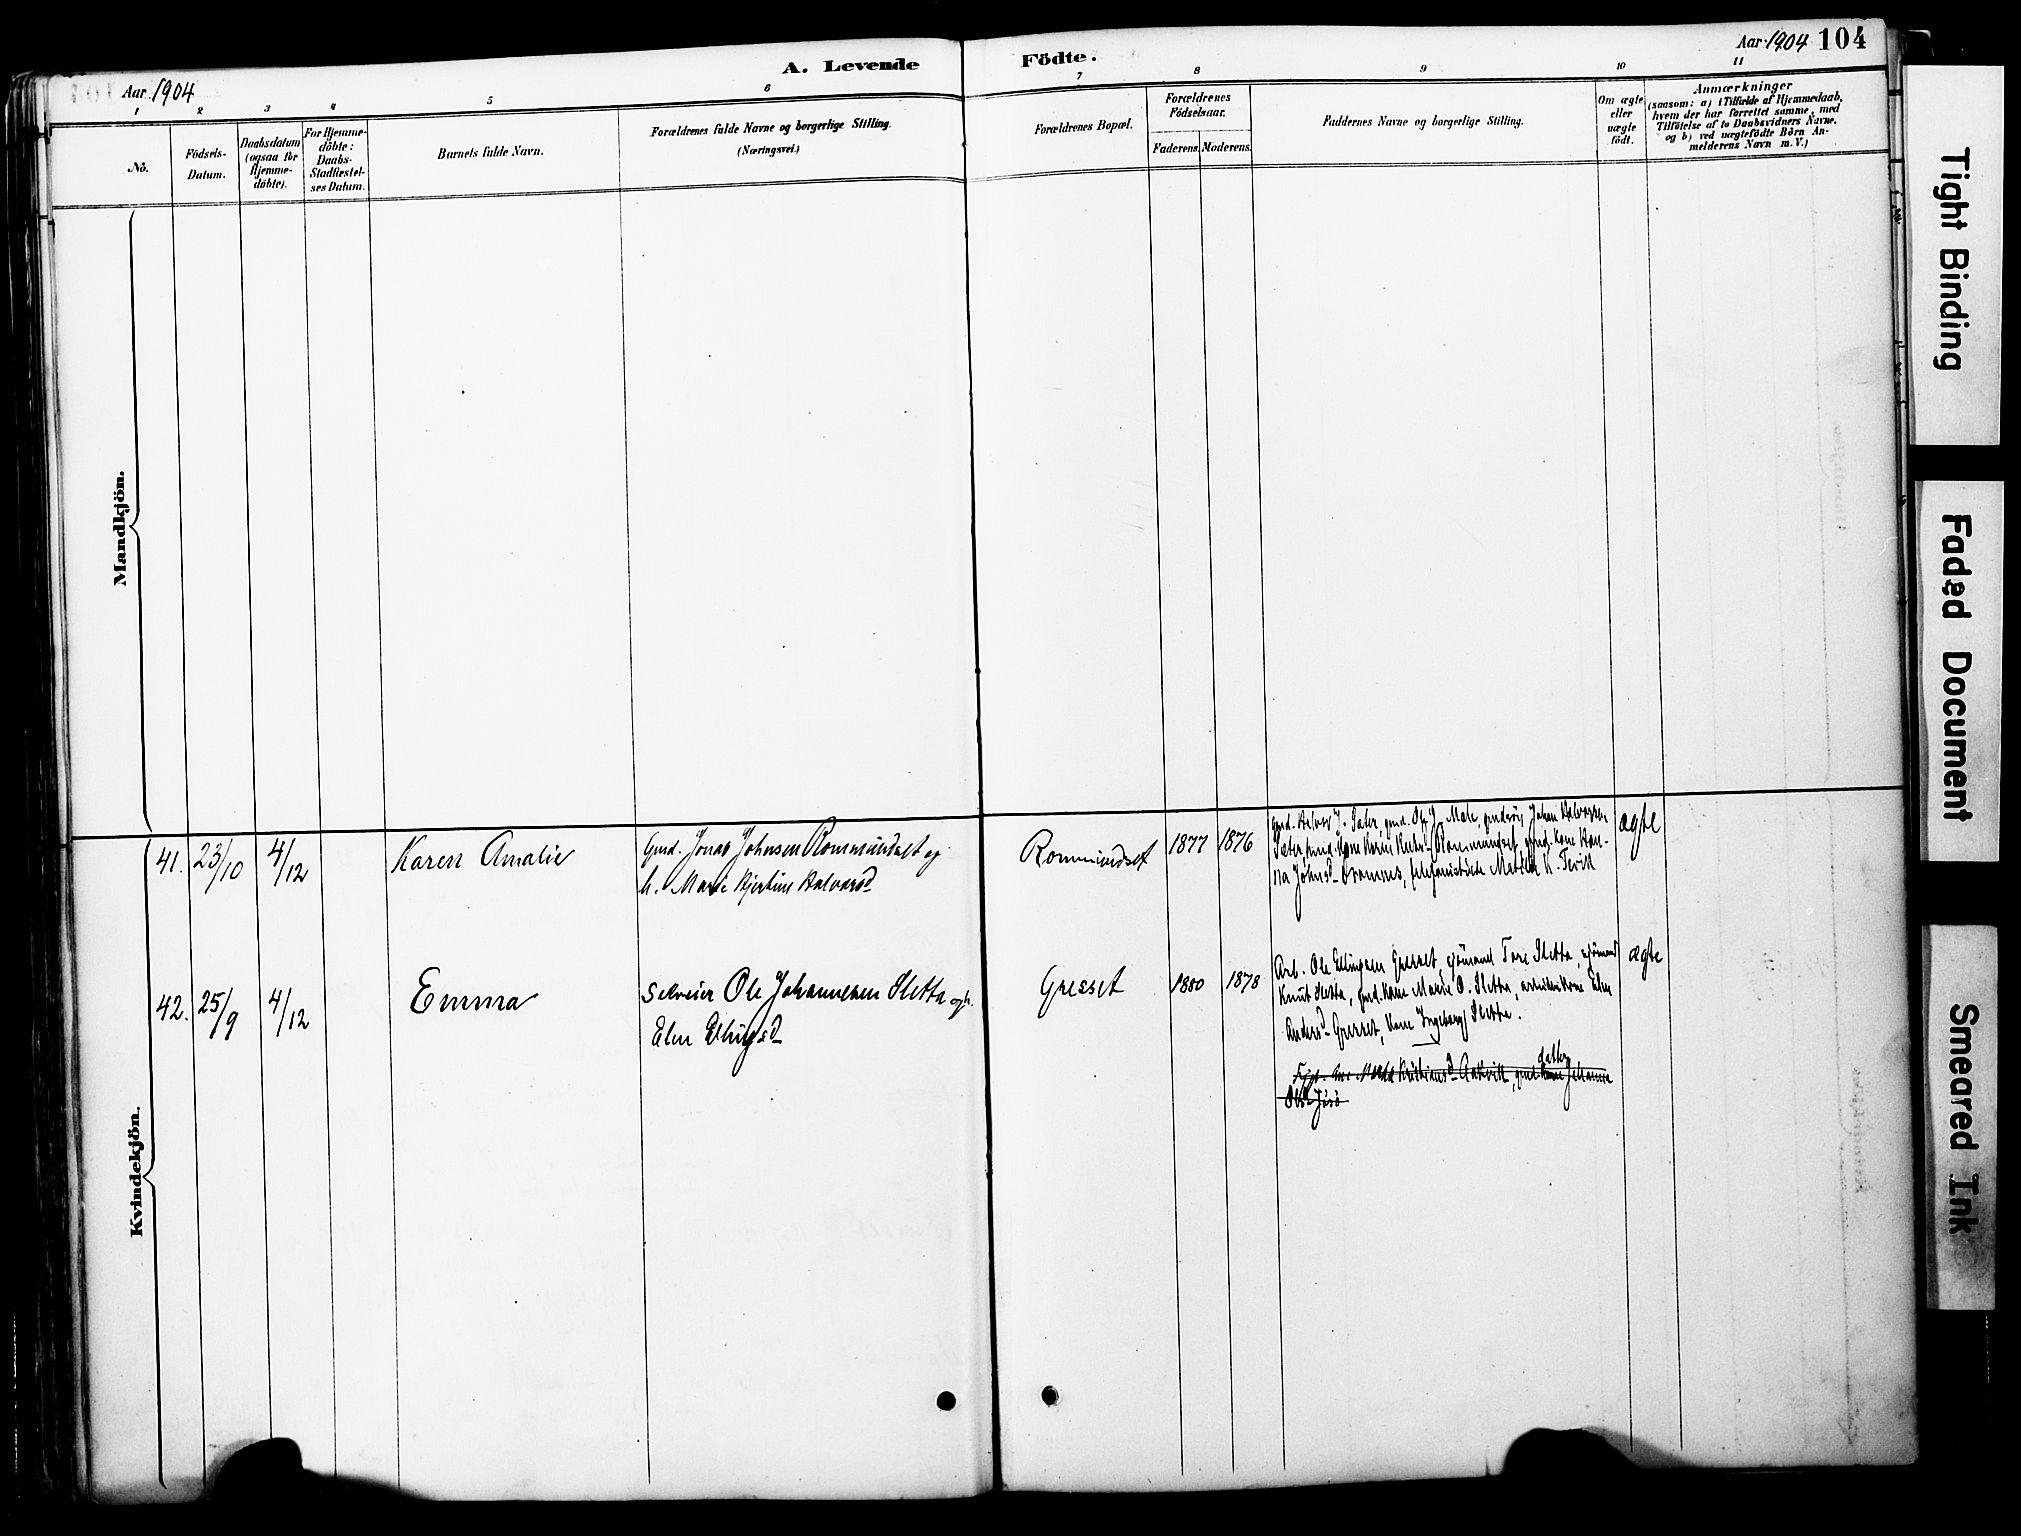 Aar 1904
A. Levende Födte.
Aar 1904 104
1 2 3 4 5 6 7 8 9 10 11
No.
Födsels-
Datum.
Daabsdatum
(ogsaa for
Hjemme-
döbte).
For Hjemme-
döbte:
Daabs-
Stadfæstel-
ses Datum.
Barnets fulde Navn.
Forældrenes fulde Navne og borgerlige Stilling.
(Næringsvei.)
Forældrenes Bopæl.
Forældrenes
Födselsaar.
Faderens. Moderens.
Faddernes Navne og borgerlige Stilling.
Om ægte
eller
uægte
födt.
Anmærkninger
(saasom: a) i Tilfælde af Hjemmedaab,
hvem der har forrettet samme, med
Tilföielse af to Daabsvidners Navne.
og b) ved uægtefödte Börn An-
melderens Navn m. V.)
Mandkjön.
Kvindekjön.
41. 23/10 4/12
Karen Amalie
Gmd. Jonas Johnsen Rommundset og
h. Marie Kjerstine Halvorsd
Rommundset
1877 1876
Gmd. Halvor J. Sæter, gmd. Ole J.
Sæter, gmd. kone Karen
na Johnsd
ægte
42. 25/9 4/12
Emma
Selveier Ole Johannesen Sletta og h.
Elen Ellingsd
Gresset
1880 1878
Arb. Ole Ellingsen Gresset, sjömand Tore Sletta, sjömand
Knut Sletta, gmd. kone Marie O. Sletta, arbeiderkone Elen
Andersd Gresset, kone Ingeborg Sletta.
datter
Kristiansd Aakvik, gmd. kone Johanna
Olsd
ægte
Tight Binding
Faded Document
Smeared Ink